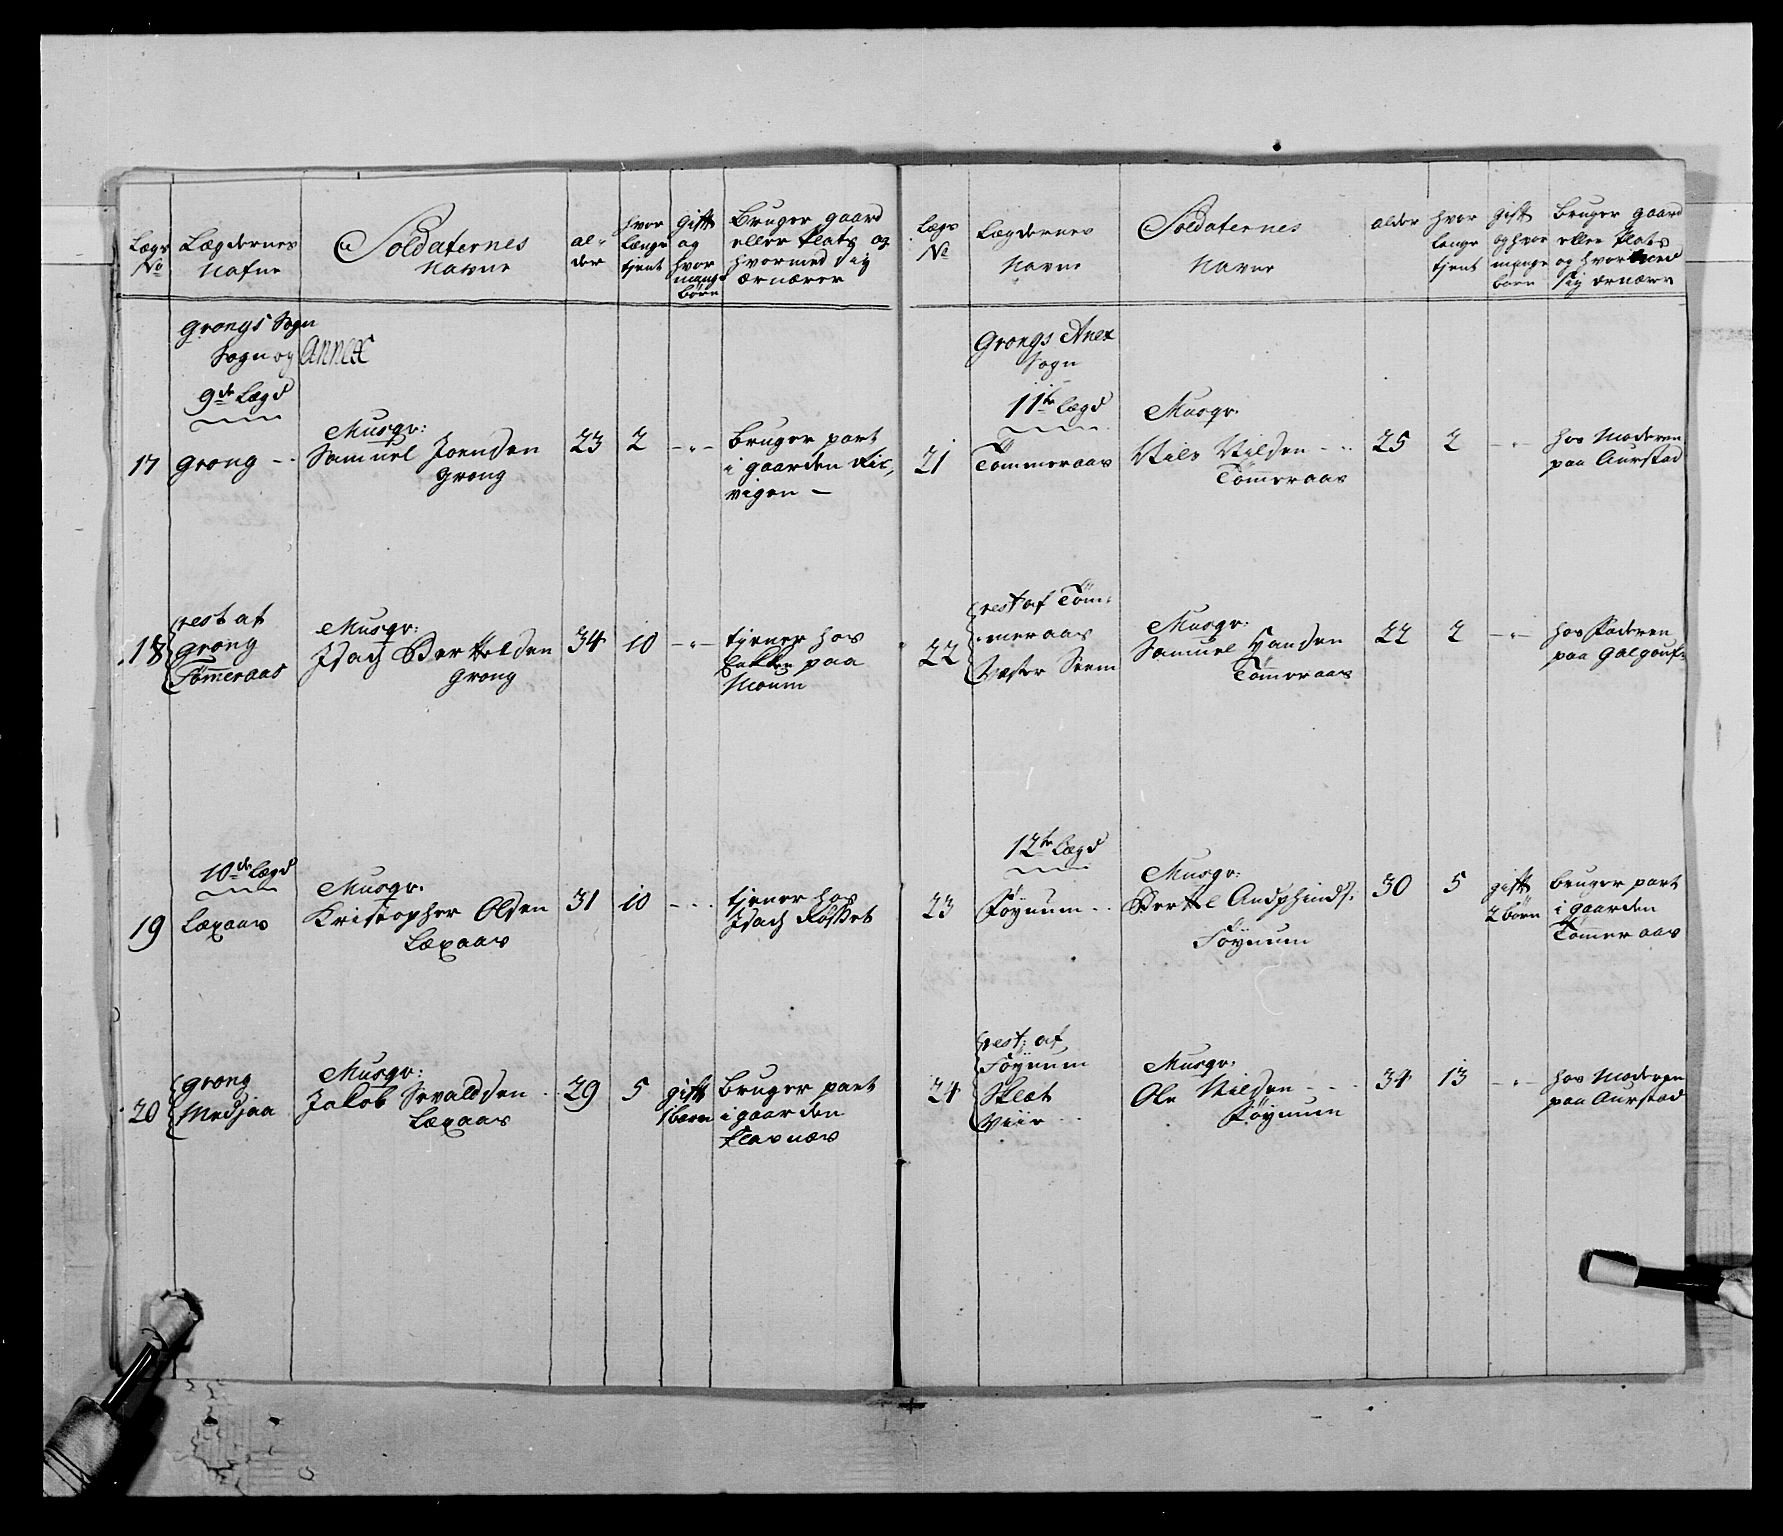 Lægs No
Lægdernes Nafne
Soldaternes Navne
alder
hvor længe tjent
gift og hvor mange børn
Bruger gaard eller Plats og hvormed sig ærnærer
Grongs Sogn
Sogn og Annex
9de Lægd
17 Grong - -
Musqr:
Samuel Joensen
Grong
23 2 - " -
bruger part
i gaarden
vigen -
18 rest af
Grong
Tømeraas
Musqr:
Isach Bertelsen
Grong
34 10 - " -
tjener hos
paa
Moum
10de Lægd
19 Læxaas
Musqr.
Kristopher Olsen
Læxaas
31 10 - - -
tjener hos
Isach Røsset
20 Grong
Medjaa
Musqr:
Jakob Sivaldsen
Læxaas
29 5 gift
1 børn
Bruger part
i gaarden
Lægs No
Lægdernes Navne
Soldaternes Navne
alder
hvor længe tjent
gift og hvor mange børn
bruger gaard eller Plats og hvormed sig ærnærer
Grongs Anex
Sogn
11te Lægd
21 Tømmeraas
Musqr.
Nils Nilsen - - -
Tømeraas
25 2 - " -
hos Moderen
paa Aurstad
22 rest af Töm-
meraas
Væster Seem
Musqr:
Samuel Hansen
Tømeraas
22 2 - " -
hos Faderen
paa
12te Lægd
23 Föynum - -
Musqr:
Bertel
Föynum
30 5 gift
2 børn
bruger part
i gaarden
Tömmeraas
24 rest; af
Föynum
Sklet
Viir - -
Musqr:
Ole Nilsen - - -
Föynum
34 13 - " -
hos Moderen
paa Aurstad